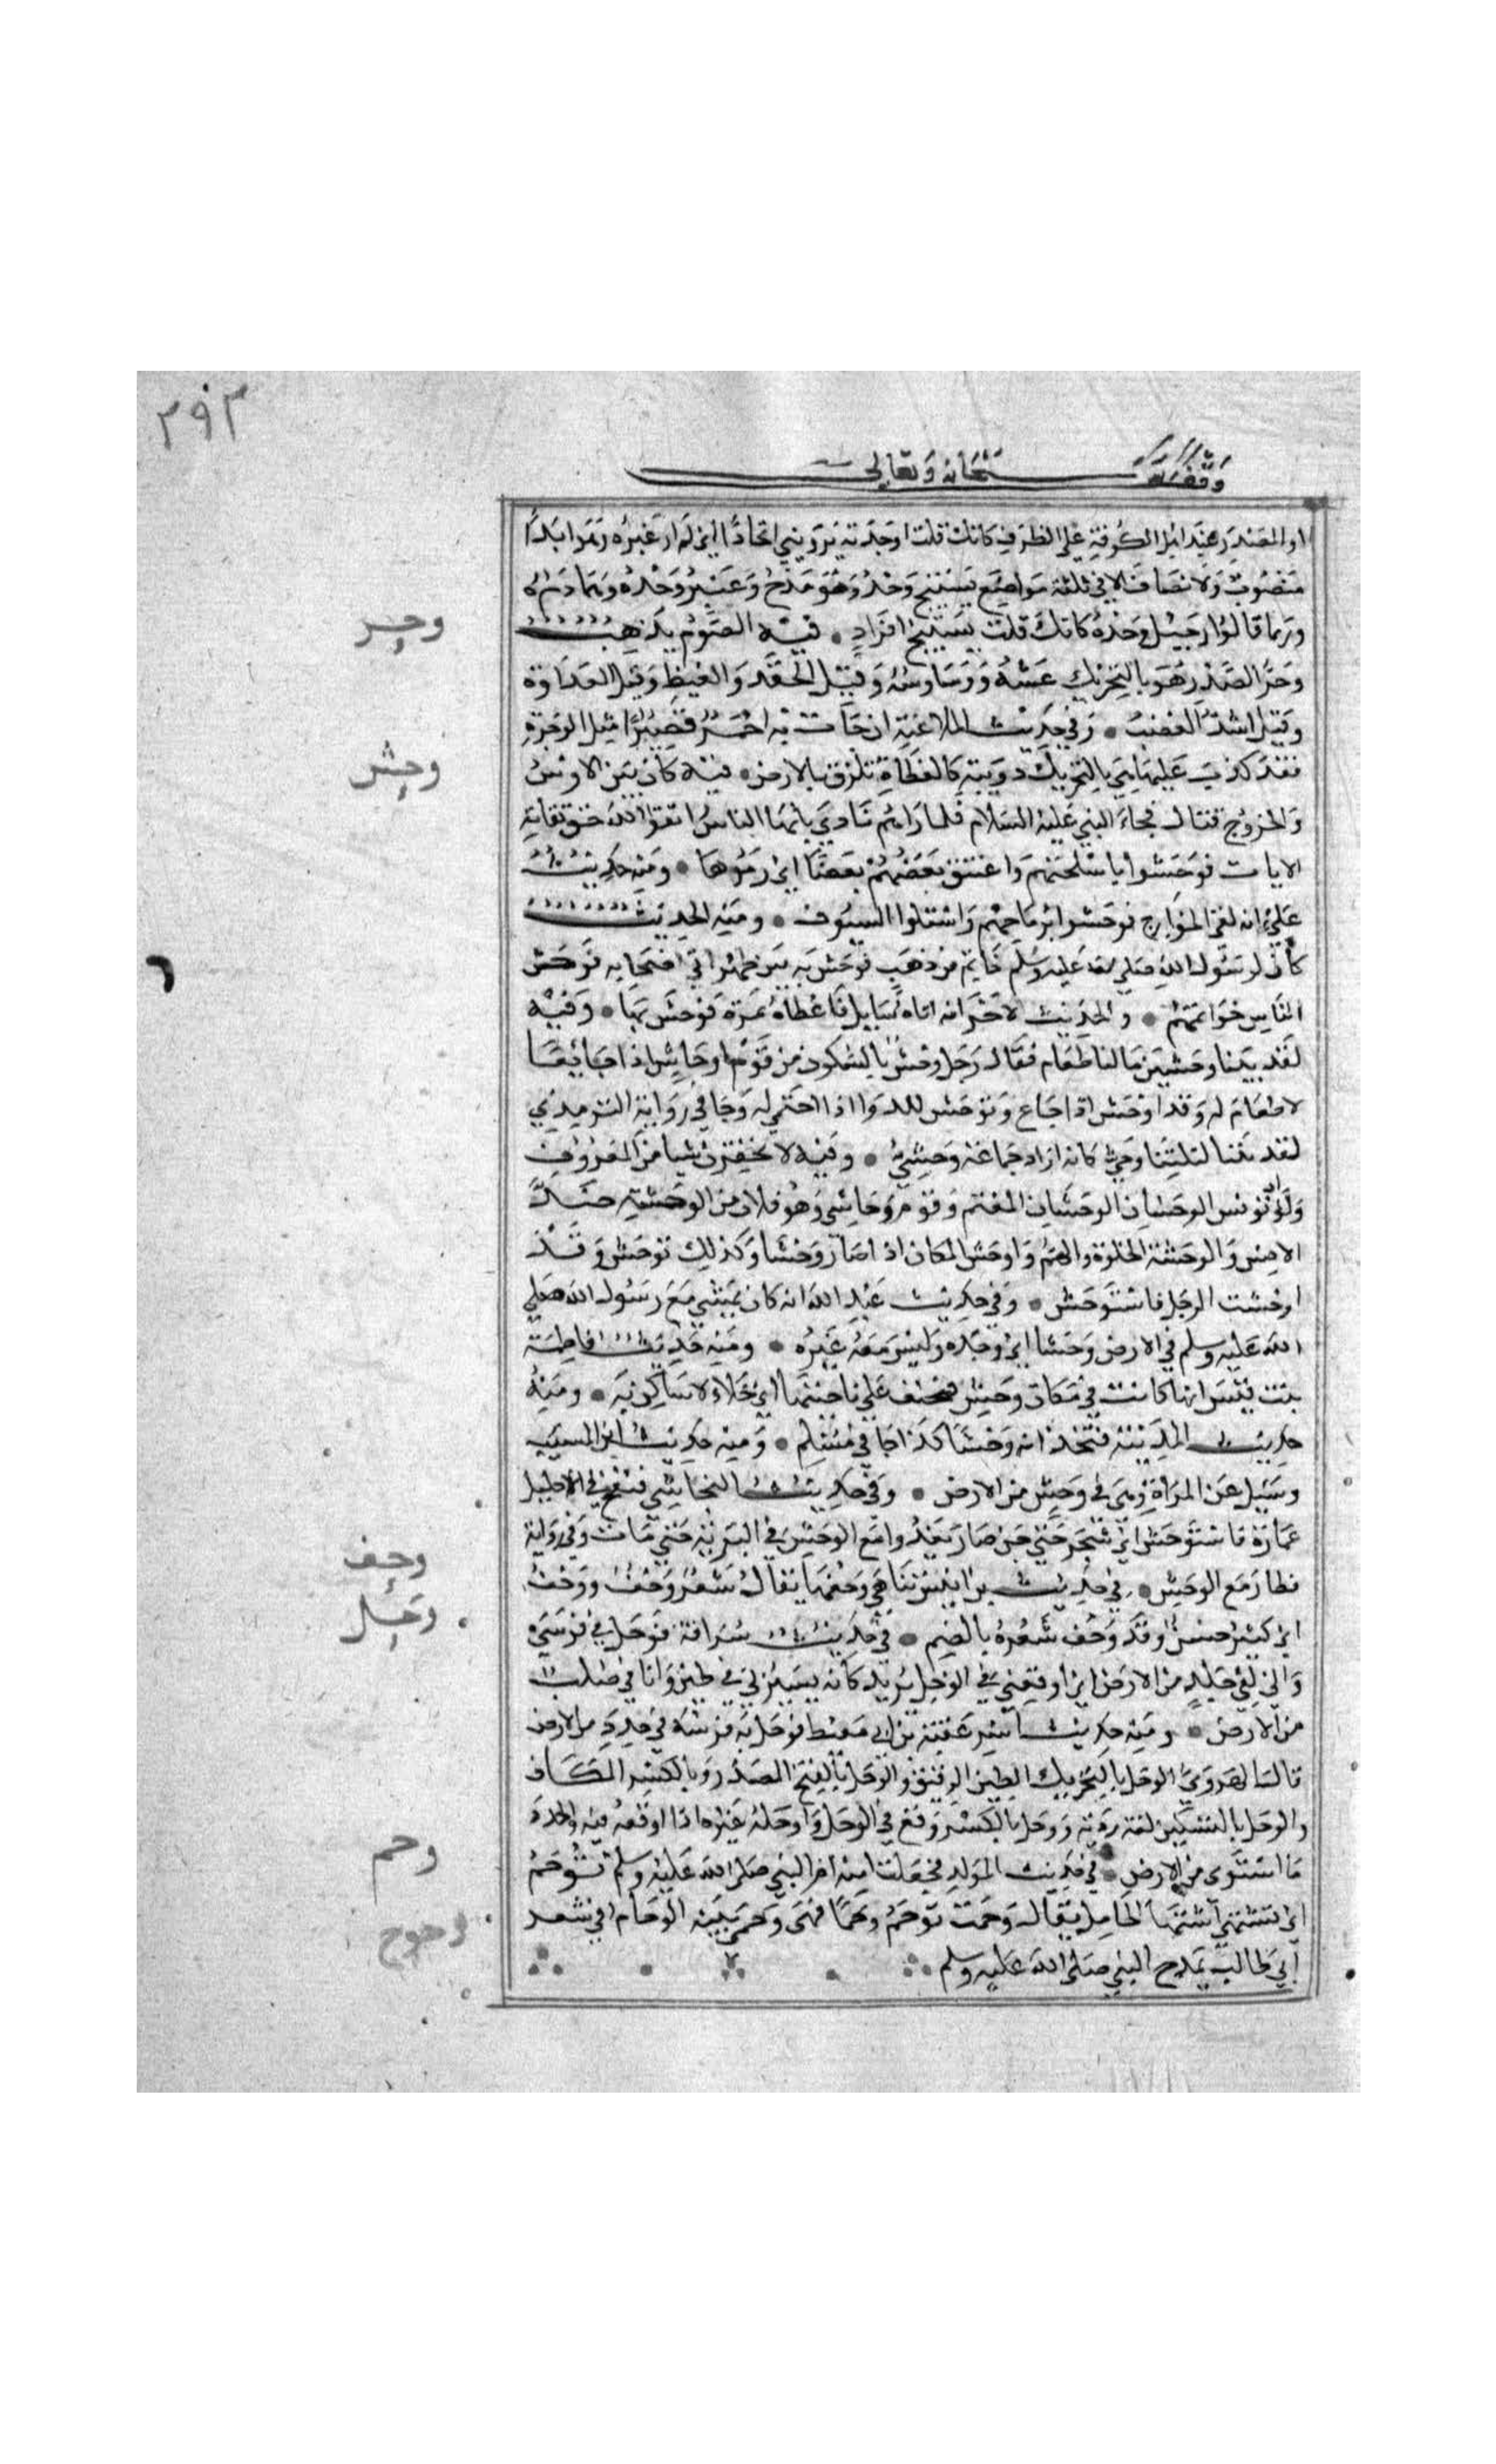 ٢٩٣
وقف لله سبحانه وتعالى
او المصدر وعند اهل الكوفة على الظرف كانك قلت اوحدته برويتي اتحادا اي لم ار غيره وهو ابدا
منصوب ولا يضاف الا في ثلثة مواضع نسيج وحده وهو مدح وعيير وحده وهما ذم
وربما قالوا رجيل وحده كانك قلت نسيج افراد فيه الصوم يذهب
وحر الصدر هو بالتحريك غشه ووساوسه وقيل الحقد والغيظ وقيل العداوة
وقيل اشد الغضب وفي حديث الملاعنة ان جات به احمر قصيرا مثل الوحرة
فقد كذب عليها هي بالتحريك دويبة كالعظاة تلزق بالارض فيه كان بين الاوس
والخزرج قتال فجاء النبي عليه السلام فلما راهم نادى يايها الناس اتقوا الله حق تقاته
الايات فوحشوا باسلحتهم واعتنق بعضهم بعضا اي رموها ومنه حديث
علي انه لقي الخوارج فوحشوا برماحهم واستلوا السيوف ومنه الحديث
كان لرسول الله صلى الله عليه وسلم خاتم من ذهب فوحش به بين ظهراني اصحابه فوحش
الناس خواتمهم والحديث الاخر انه اتاه سايل فاعطاه تمرة فوحش بها وفيه
لقد بتنا وحشين مالنا طعام فقال رجل وحش بالسكون من قوم اوحاش اذا جائعا
لا طعام له وقد اوحش اذا جاع وتوحش للدوا اذا احتمى له وجا في رواية الترمذي
لقد بتنا ليلتنا وحشى كانه اراد جماعة وحشى وفيه لا تحقرن شيا من المعروف
ولو ان تونس الوحشان الوحشان المغتم وقوم وحاشى وهو فعلان من الوحشة ضد
الانس والوحشة الخلوة والهم واوحش المكان اذا صار وحشا وكذلك توحش وقد
اوحشت الرجل فاستوحش وفي حديث عبد الله انه كان يمشي مع رسول الله صلى
الله عليه وسلم في الارض وحشا اي وحده وليس معه غيره ومنه حديث فاطمة
بنت قيس انها كانت في مكان وحش فخيف على ناحيتها اي خلاء لا ساكن به ومنه
حديث المدينة فتجدانه وحشا كذا جا في مسلم ومنه حديث ابن المسيب
وسيل عن المراة وهي في وحش من الارض وفي حديث النجاشي فنفخ في الاحليل
عمارة فاستوحش اي سحر حتى جن صار يعدوا مع الوحش في البرية حتى مات وفي رواية
فطار مع الوحش في حديث ابن انيس تناهى وحفها يقال شعر وحف ووحف
اي كثير حسن وقد وحف شعره بالضم في حديث سراقة فوحل بي فرسي
واني لفي جلد من الارض اي اوقعني في الوحل يريد كانه يسير بي في طين وانا في صلب
من الارض ومنه حديث اسر عقبة بن ابي معيط فوحل به فرسه في جدد من الارض
قال الهروي الوحل بالتحريك الطين الرقيق والوحل بالفتح المصدر وبالكسر المكان
والوحل بالتسكين لغة ردية ووحل بالكسر وقع في الوحل واوحله غيره اذا اوقعه فيه والجدد
ما استوى من الارض في حديث المولد فجعلت امنة ام النبي صلى الله عليه وسلم توحم
اي تشتهي اشتهاء الحامل يقال وحمت توحم وحما فهي وحمى بينة الوحام في شعر
ابي طالب يمدح النبي صلى الله عليه وسلم
وحر
وحش
وحف
وحل
وحم
وحوح